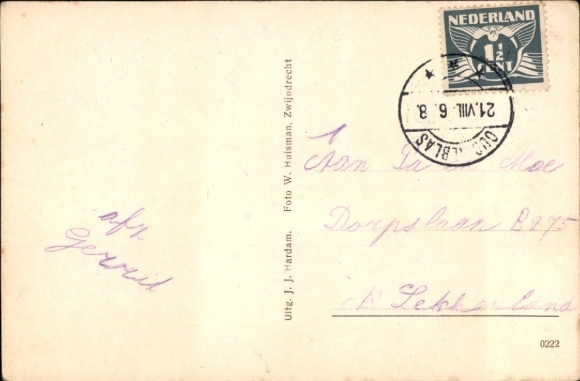 NEDERLAND
1½
CENT
21.VIII. 6 8.
afz
Gerrid
Uitg. J. J. Hardam. Foto W. Huisman, Zwijndrecht
Aan Pa en Moe
Dorpslaan B975
Lekkerland
0222